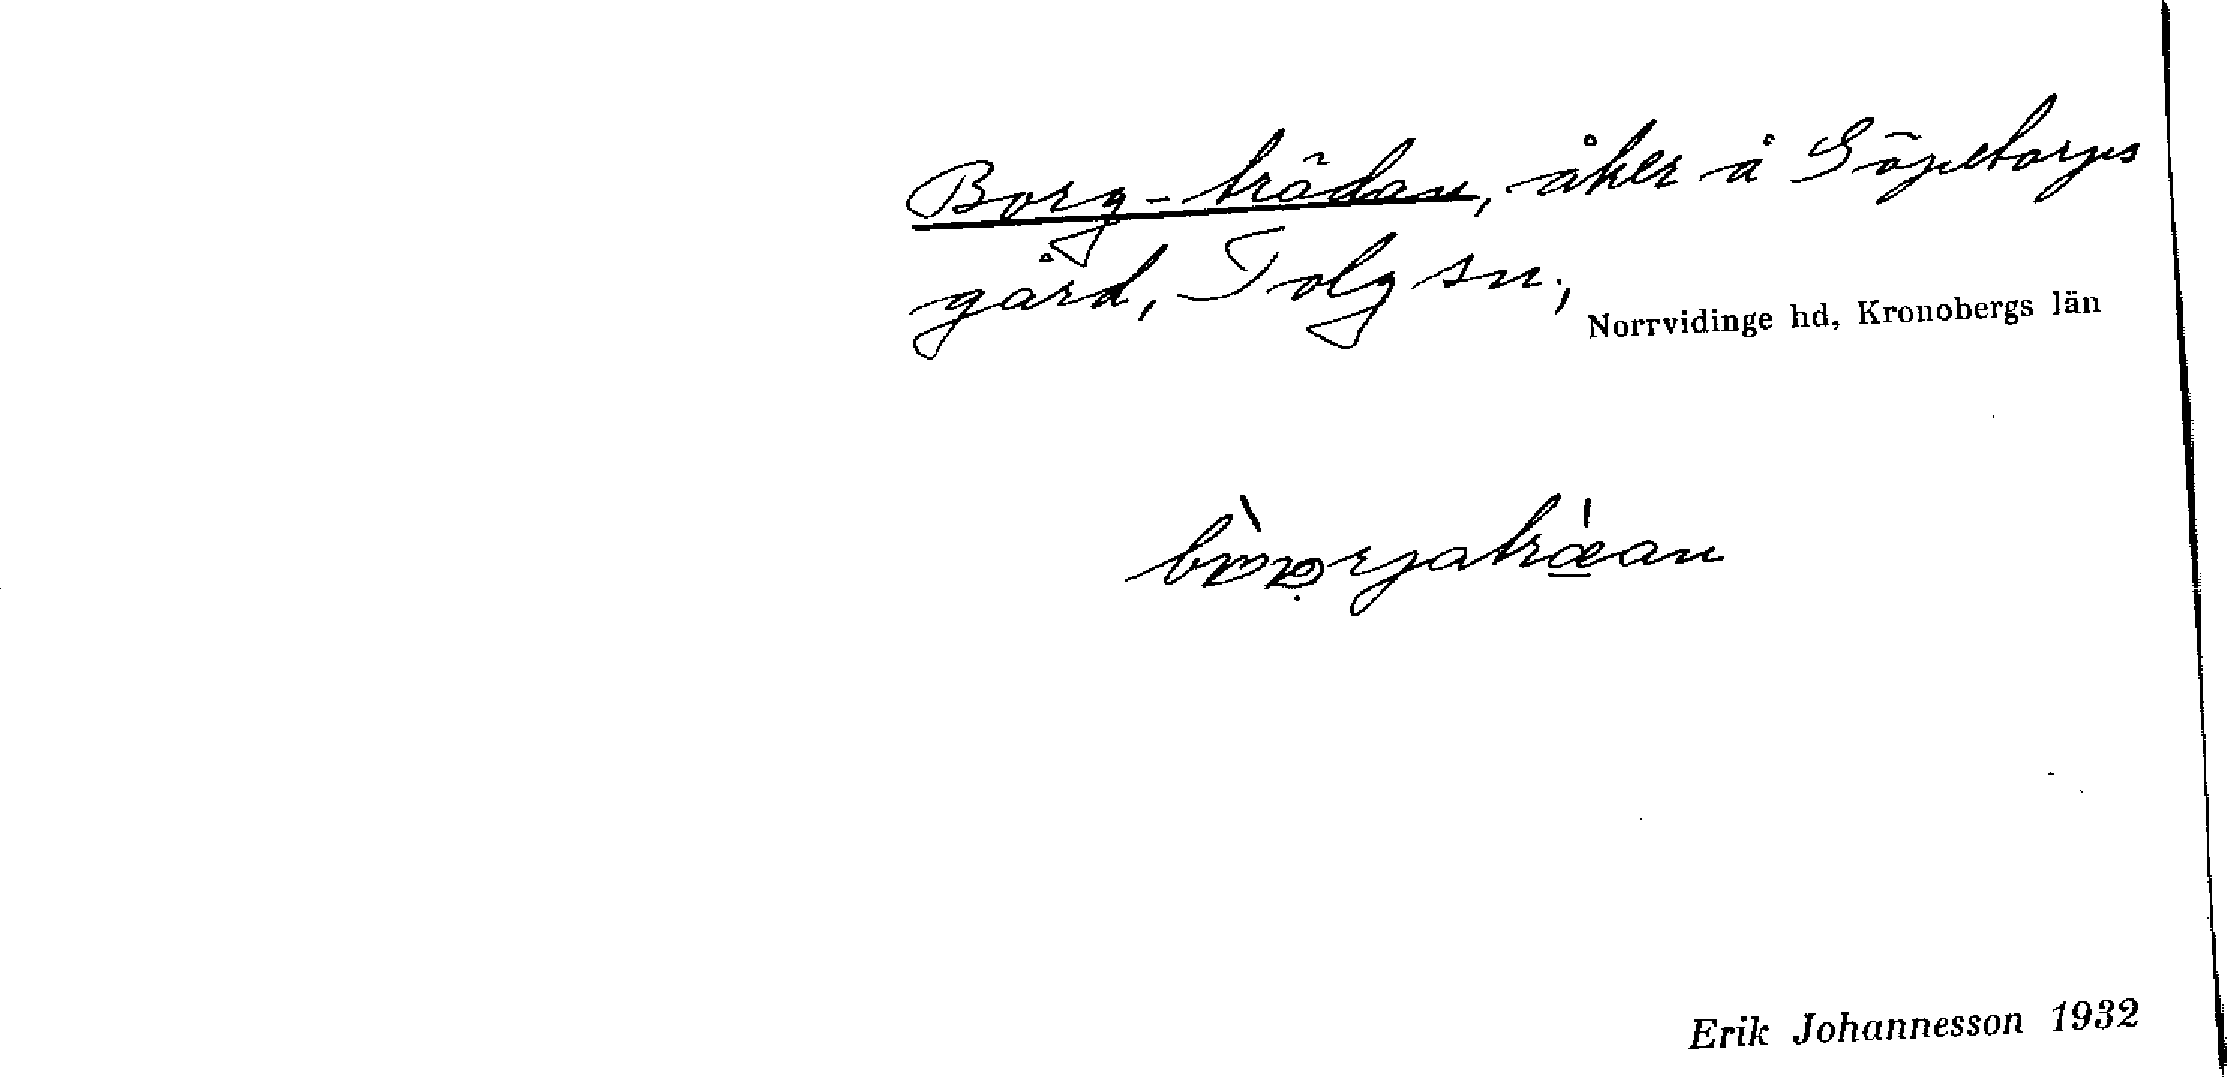 Borg-trädan, åker å Göpetorps
gård, Tolg sn.,
Norrvidinge hd, Kronobergs län
Erik Johannesson 1932